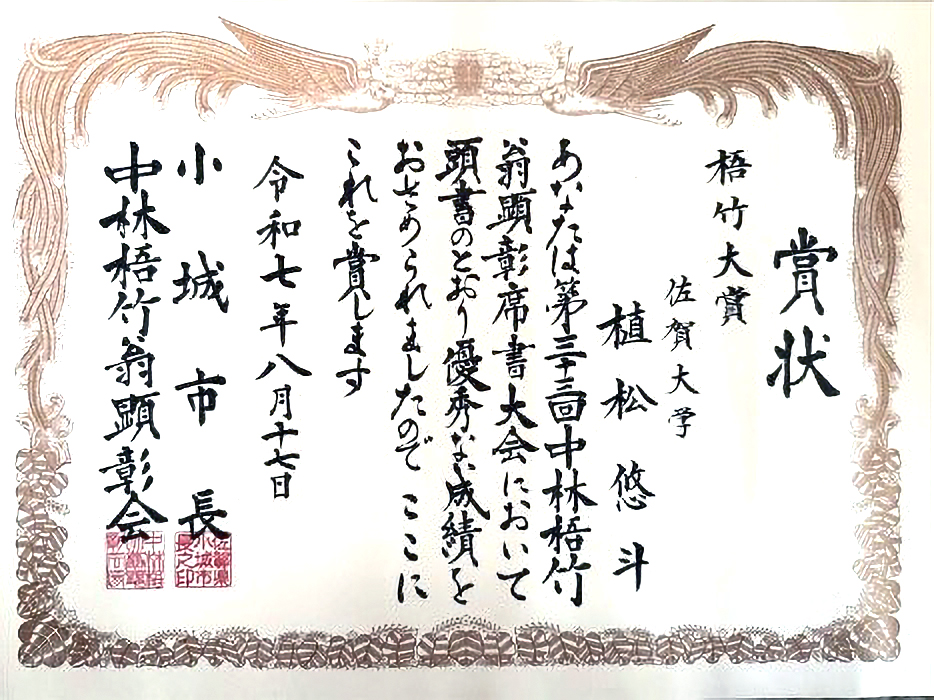 賞状
梧竹大賞
佐賀大学
植松悠斗
あなたは第三十三回中林梧竹
翁顕彰席書大会において
頭書のとおり優秀な成績を
おさめられましたので ここに
これを賞します
令和七年八月十七日
小城市長
佐賀県
小城市
長之印
中林梧竹翁顕彰会